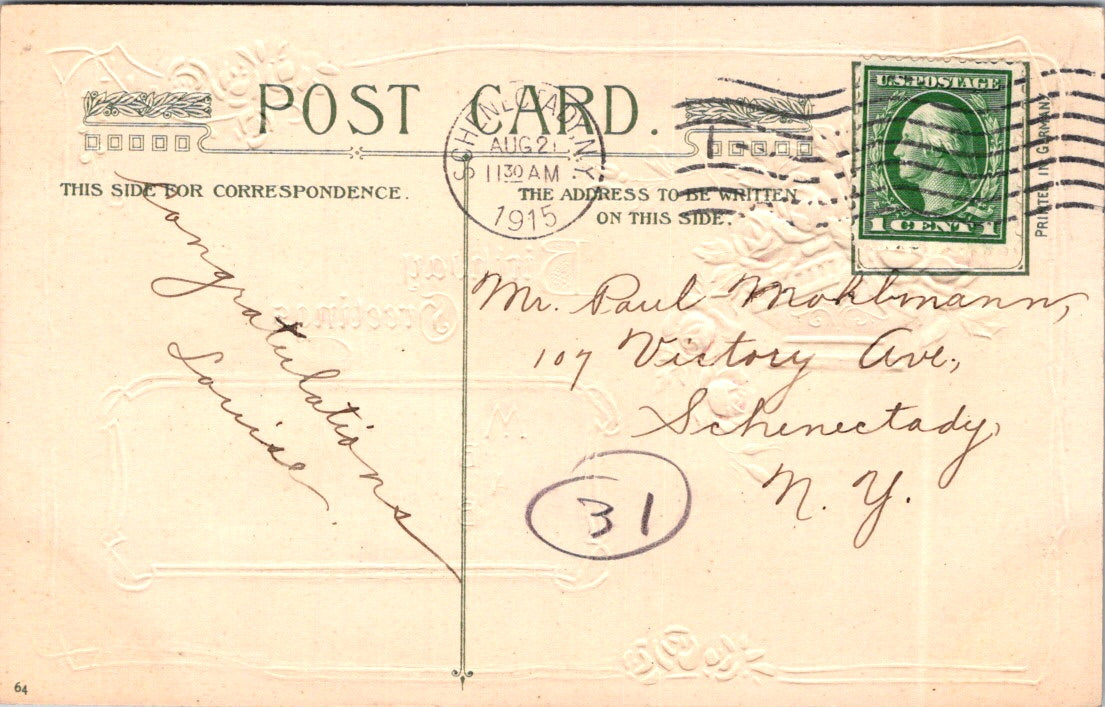 POST CARD.
SCHENECTADY, N.Y.
AUG 21
11 30 AM
1915
U.S. POSTAGE
1 CENT 1
PRINTED IN GERMANY
THIS SIDE FOR CORRESPONDENCE.
THE ADDRESS TO BE WRITTEN
ON THIS SIDE.
Birthday
Greetings
Congratulations
Louise
Mr. Paul Mohlbmann,
107 Victory Ave.,
Schenectady,
N. Y.
31
64